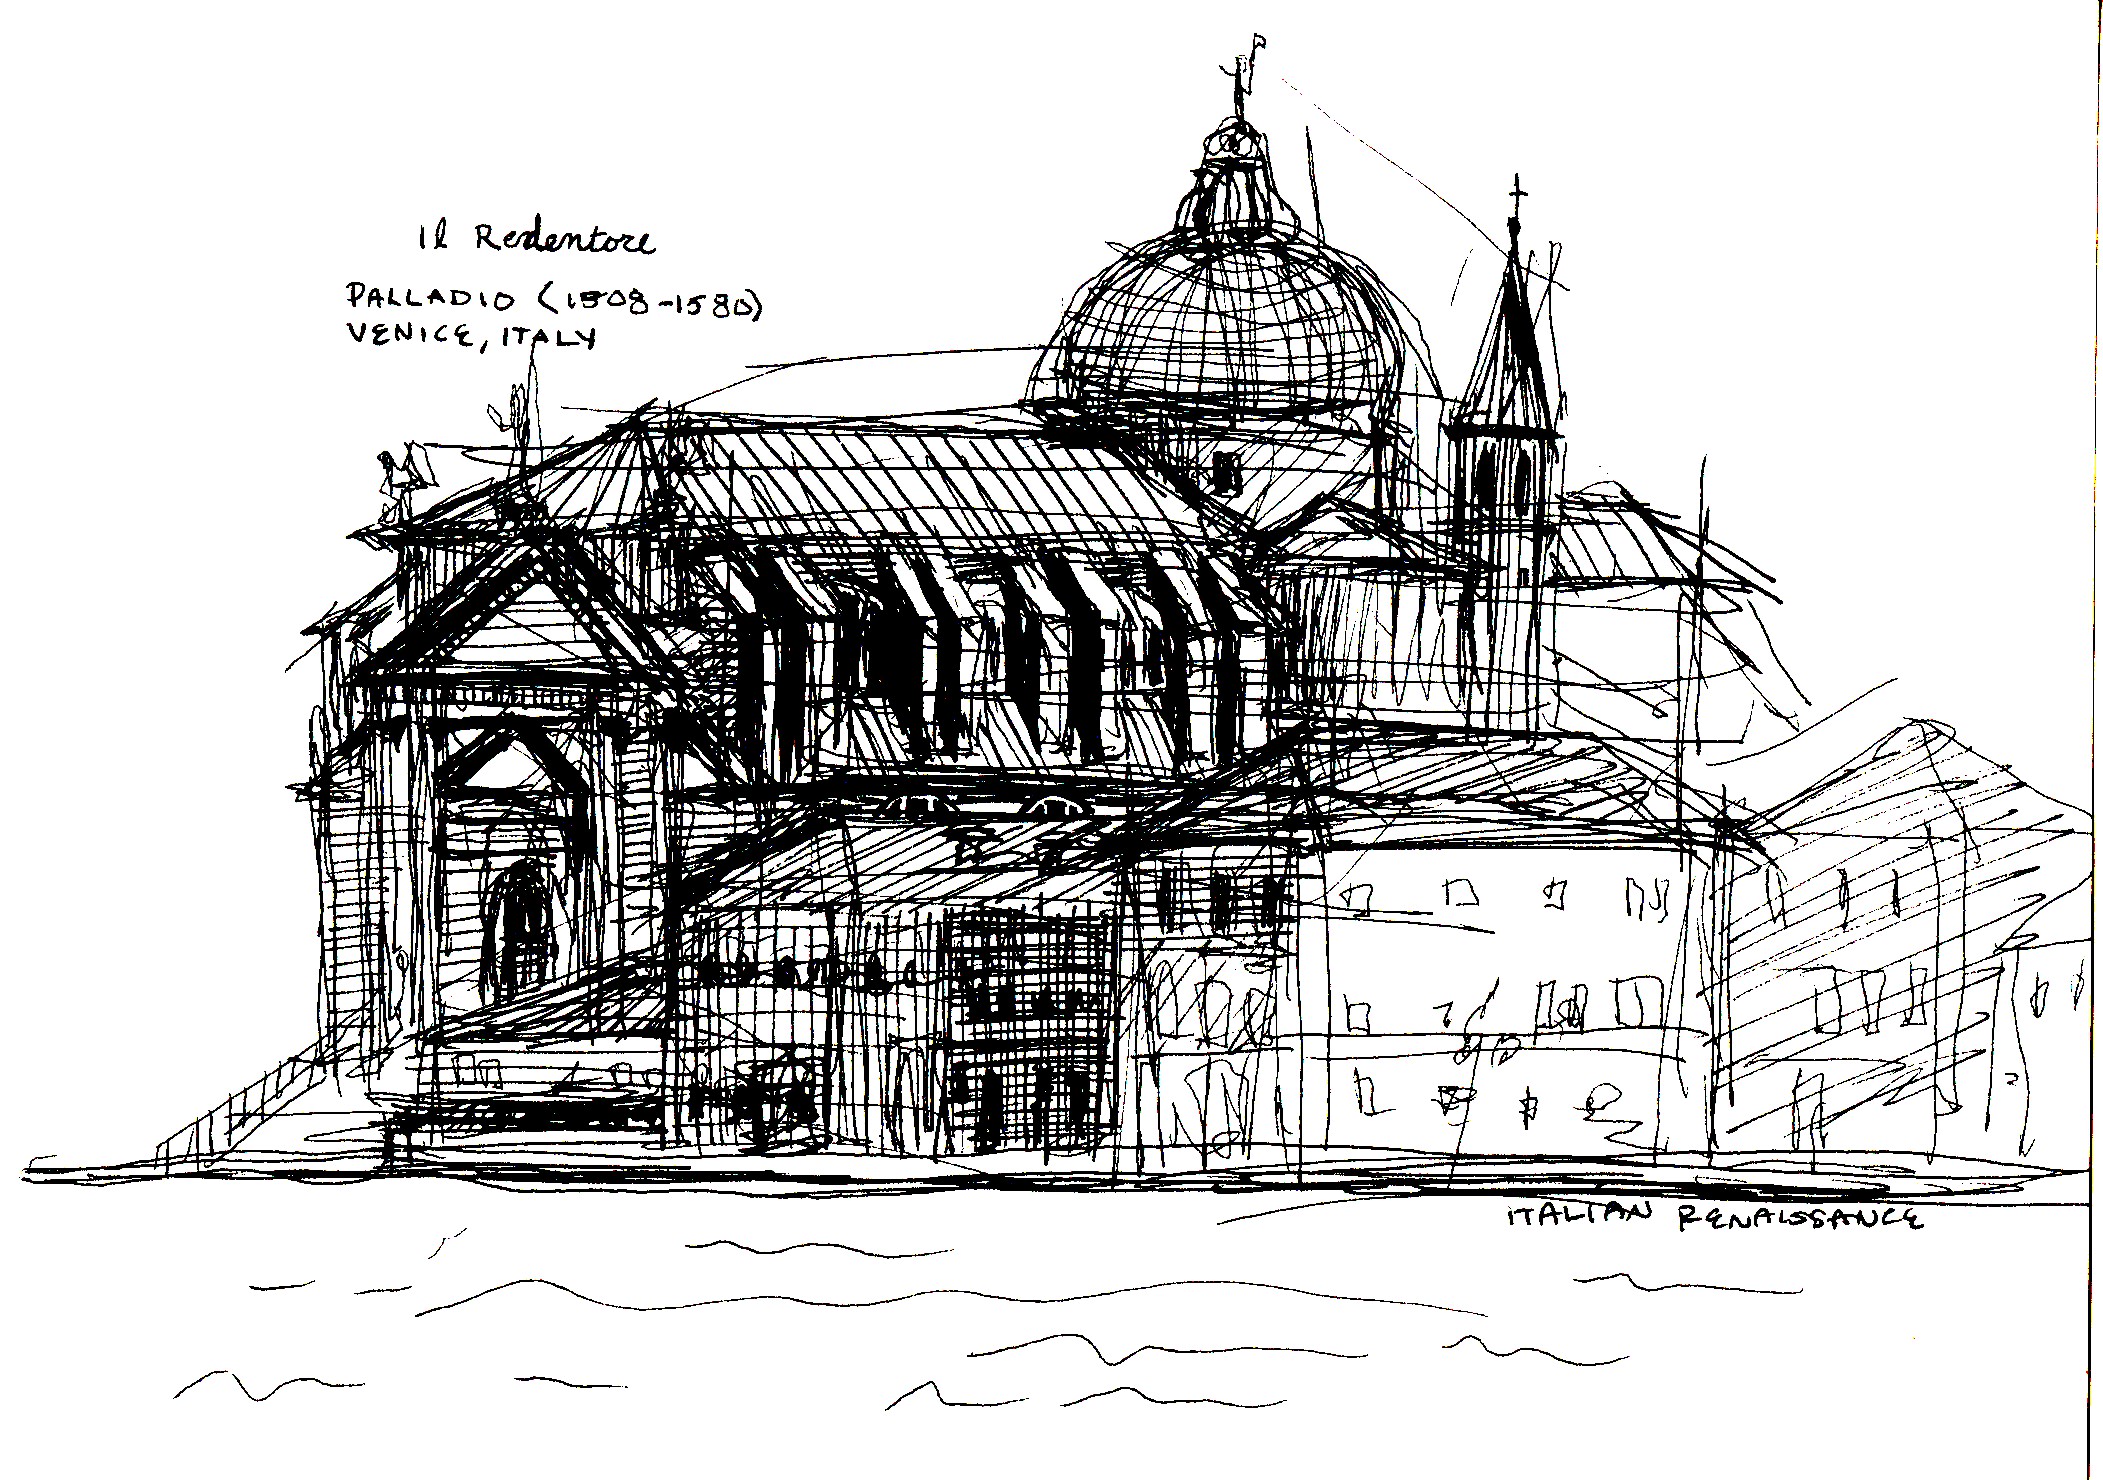 Il Redentore
PALLADIO (1508-1580)
VENICE, ITALY
ITALIAN RENAISSANCE